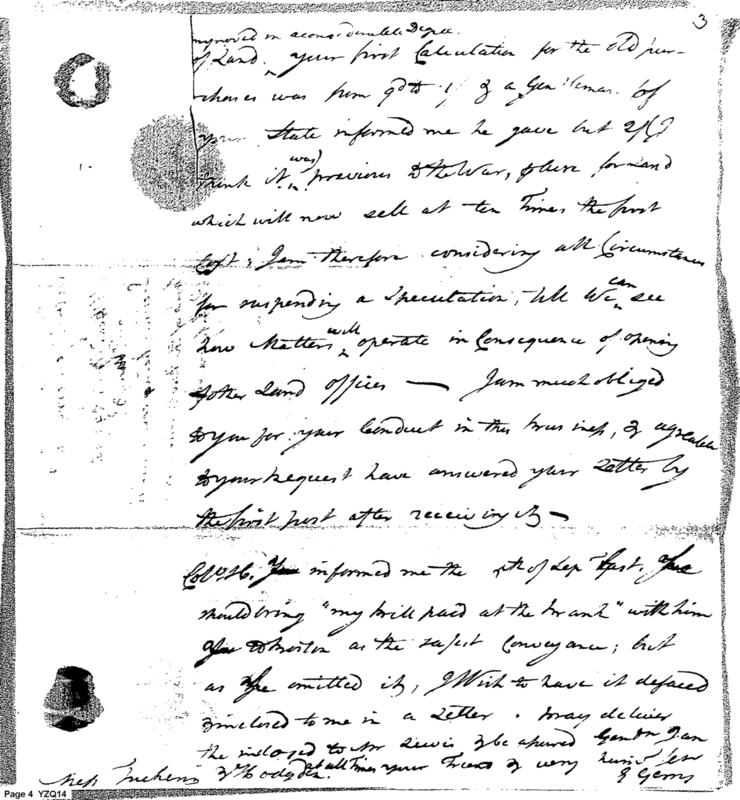 3
improved in a considerable Degree.
of Land. your first Calculation for the old pur-
chases was from 9d to 1/ & a Gentleman of
your State informed me he gave but 2/ (I
think it was) previous to the War, for land
which will now sell at ten Times the first
Cost; I am therefore considering all Circumstances
for suspending a Speculation, till We can see
how Matters will operate in Consequence of opening
other Land offices — I am much obliged
to you for your Conduct in this business, & agreeable
to your Request have answered your Letter by
the first post after receiving it —
Colo. H. informed me the of Sepr last,
should bring "my bill paid at the bank" with him
to Boston as the safest Conveyance; but
as he omitted it, I Wish to have it defaced
& inclosed to me in a Letter. pray deliver
the inclosed to Mr Lewis & be assured Gentn I am
at all Times your Friend & very hum Ser
Messrs Hodgdon E Gerry
Page 4 YZQ14